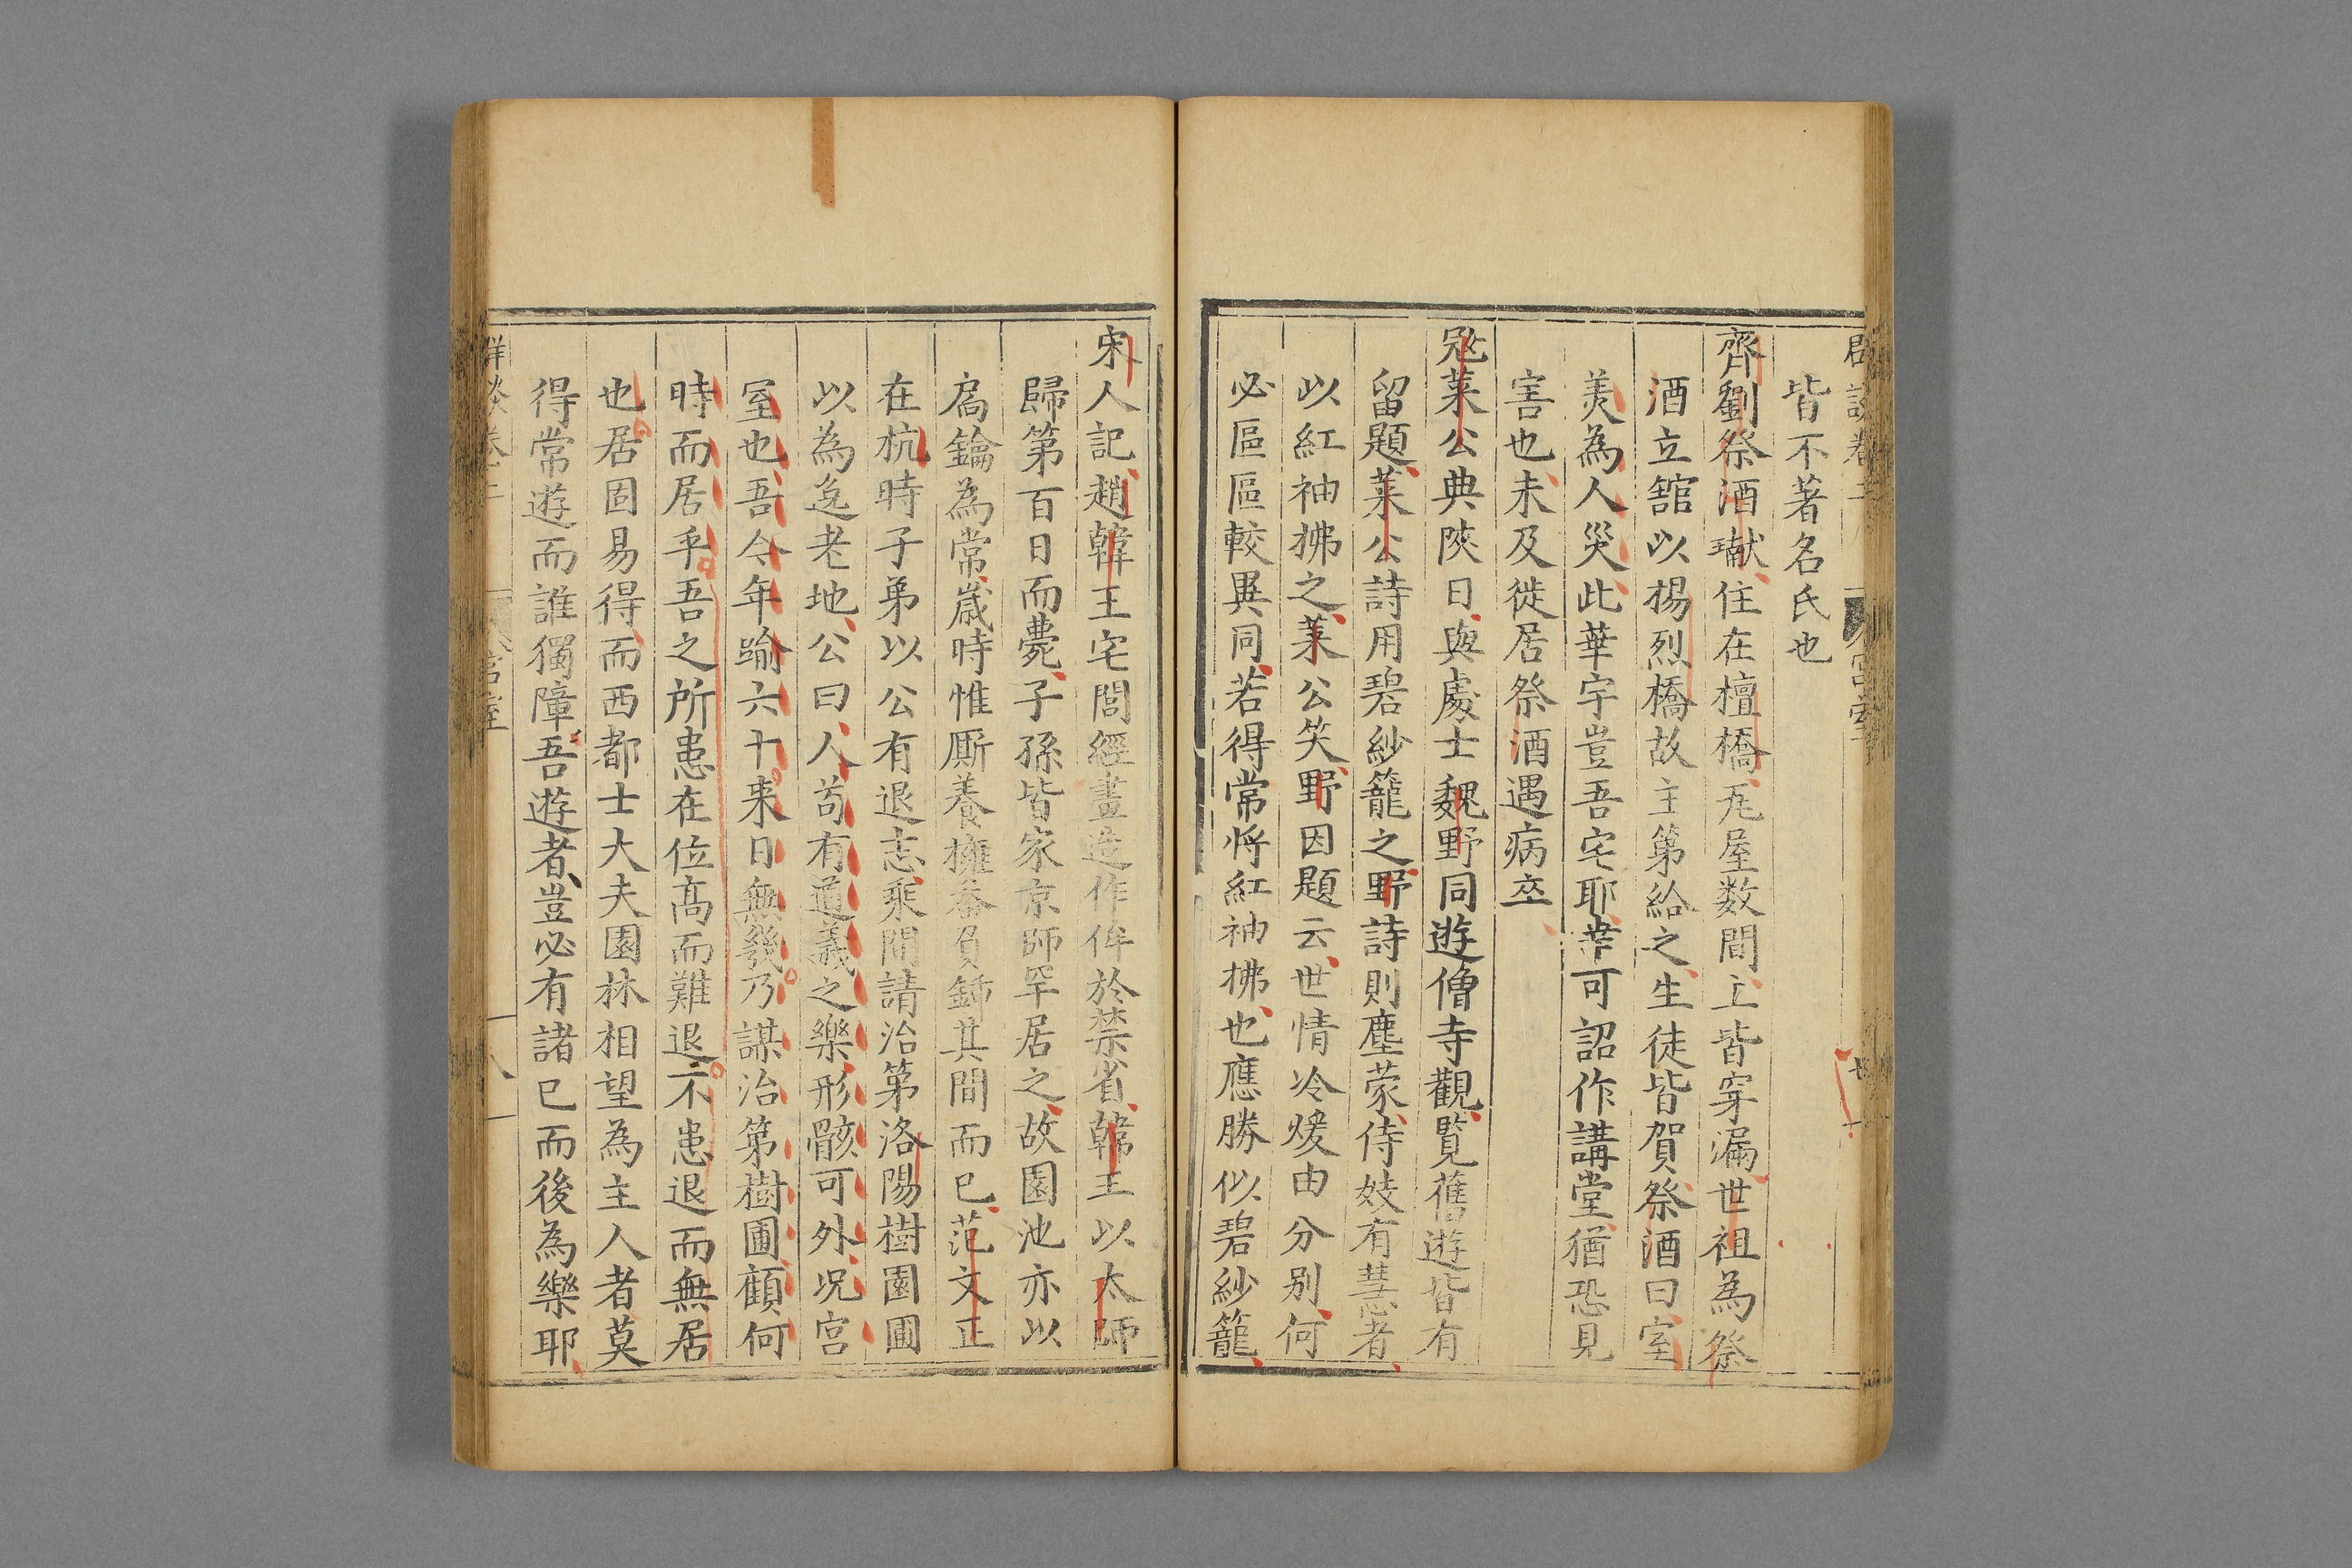 皆不著名氏也
齊劉祭酒瓛住在檀橋瓦屋数間上皆穿漏世祖為祭
酒立舘以楊烈橋故主第給之生徒皆賀祭酒曰室
美為人災此華宇豈吾宅耶幸可詔作講堂猶恐見
害也未及徙居祭酒遇病卒
冦萊公典陜日與處士魏野同遊僧寺觀覧舊遊皆有
留題萊公詩用碧紗籠之野詩則塵蒙侍妓有慧者
以紅袖拂之萊公笑野因題云世情冷煖由分别何
必區區較異同若得常将紅袖拂也應勝似碧紗籠
宋人記趙韓王宅閭經畫造作侔於禁省韓王以太師
歸第百日而薨子孫皆家京師罕居之故園池亦以
扄鑰為常歳時惟厮養擁畚負鍤其間而已范文正
在杭時子弟以公有退志乘間請治第洛陽樹園圃
以為迯老地公曰人苟有道義之樂形骸可外况宫
室也吾今年踰六十来日無幾乃謀治第樹圃顧何
時而居乎吾之所患在位髙而難退不患退而無居
也居固易得而西都士大夫園林相望為主人者莫
得常遊而誰獨障吾遊者豈必有諸已而後為樂耶
群談卷二 宫室 八